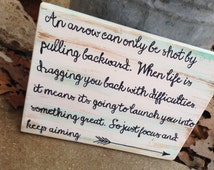 An arrow can only be shot by
pulling backward. When life is
dragging you back with difficulties
it means its going to launch you into
something great. So just focus and
keep aiming